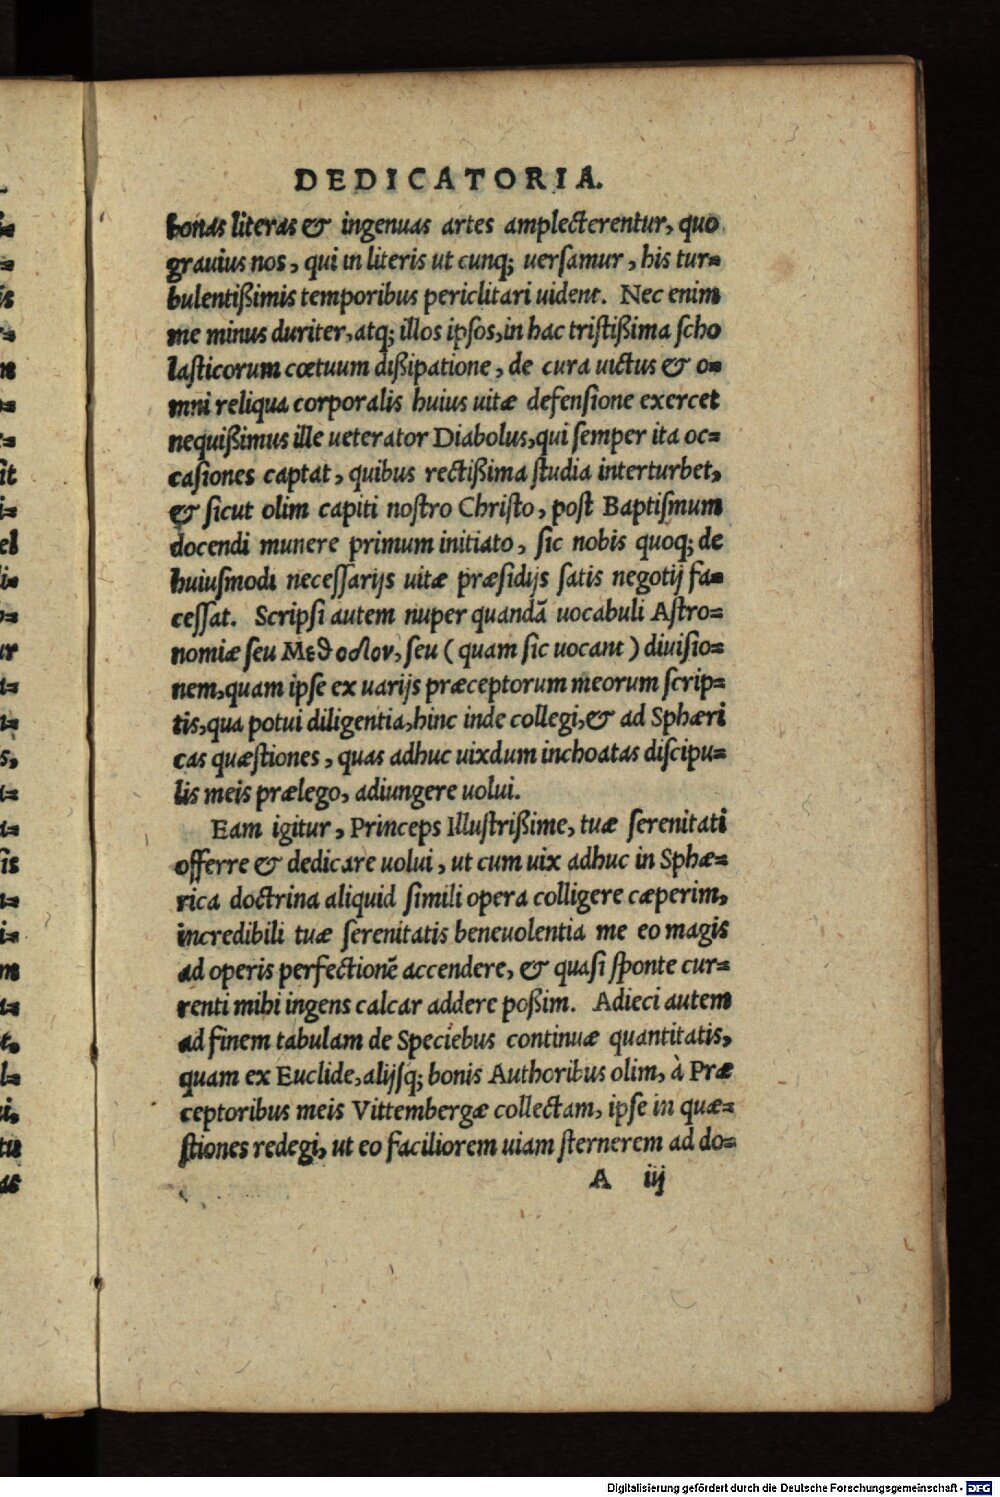 DEDICATORIA.
bonas literas & ingenuas artes amplecterentur, quo
grauius nos, qui in literis ut cunq; uersamur, his tur=
bulentißimis temporibus periclitari uident. Nec enim
me minus duriter, atq; illos ipsos, in hac tristißima scho
lasticorum cœtuum dißipatione, de cura uictus & o=
mni reliqua corporalis huius uitæ defensione exercet
nequißimus ille ueterator Diabolus, qui semper ita oc=
casiones captat, quibus rectißima studia interturbet,
& sicut olim capiti nostro Christo, post Baptismum
docendi munere primum initiato, sic nobis quoq; de
huiusmodi necessarijs uitæ præsidijs satis negotij fa=
cessat. Scripsi autem nuper quandã uocabuli Astro=
nomiæ seu Μεθοδον, seu ( quam sic uocant ) diuisio=
nem, quam ipse ex uarijs præceptorum meorum scrip=
tis, qua potui diligentia, hinc inde collegi, & ad Sphæri
cas quæstiones, quas adhuc uixdum inchoatas discipu=
lis meis prælego, adiungere uolui.
Eam igitur, Princeps Illustrißime, tuæ serenitati
offerre & dedicare uolui, ut cum uix adhuc in Sphæ=
rica doctrina aliquid simili opera colligere cæperim,
incredibili tuæ serenitatis beneuolentia me eo magis
ad operis perfectionẽ accendere, & quasi sponte cur=
renti mihi ingens calcar addere poßim. Adieci autem
ad finem tabulam de Speciebus continuæ quantitatis,
quam ex Euclide, alijsq; bonis Authoribus olim, à Præ
ceptoribus meis Vittembergæ collectam, ipse in quæ=
stiones redegi, ut eo faciliorem uiam sternerem ad do=
A iij
Digitalisierung gefördert durch die Deutsche Forschungsgemeinschaft - DFG